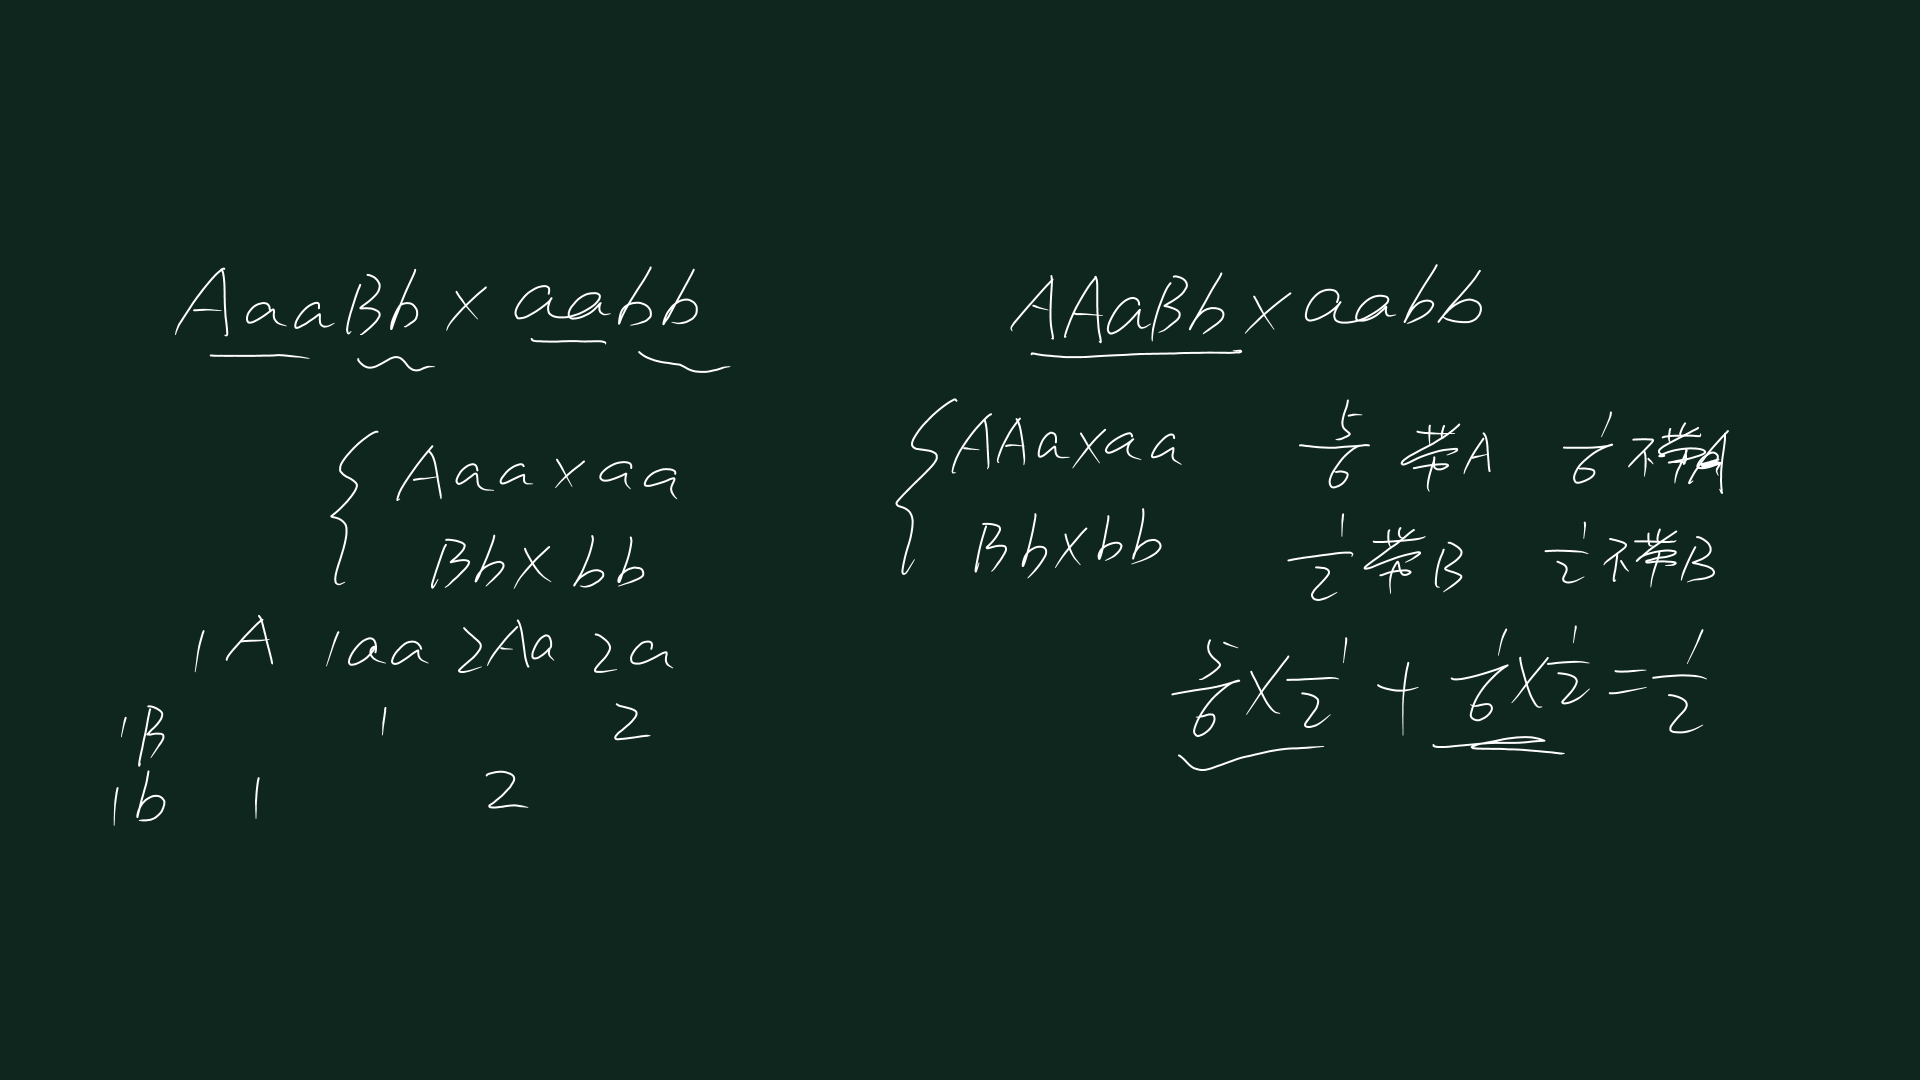 AaaBb × aabb
Aaa × aa
Bb × bb
1A 1aa 2Aa 2a
1B 1 2
1b 1 2
AAaBb × aabb
AAa × aa 5/6 带A 1/6 不带A
Bb × bb 1/2 带B 1/2 不带B
5/6 × 1/2 + 1/6 × 1/2 = 1/2